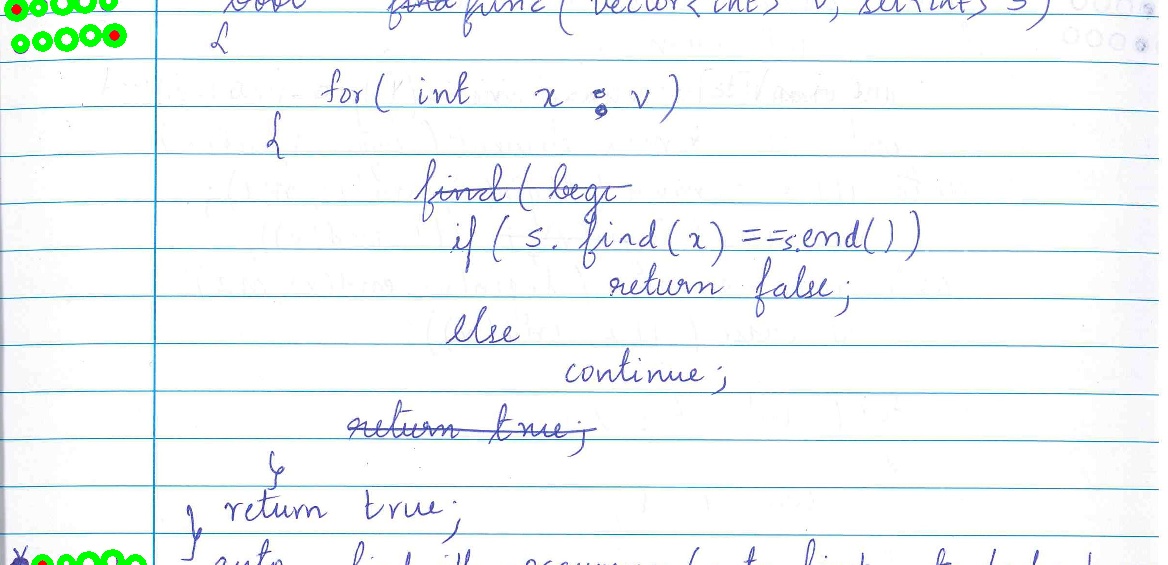 func ( vector<int> v, set<int> s )
{
for ( int x : v )
{
find ( begi
if ( s. find (x) == s.end() )
return false;
else
continue;
return true;
}
return true;
}
auto